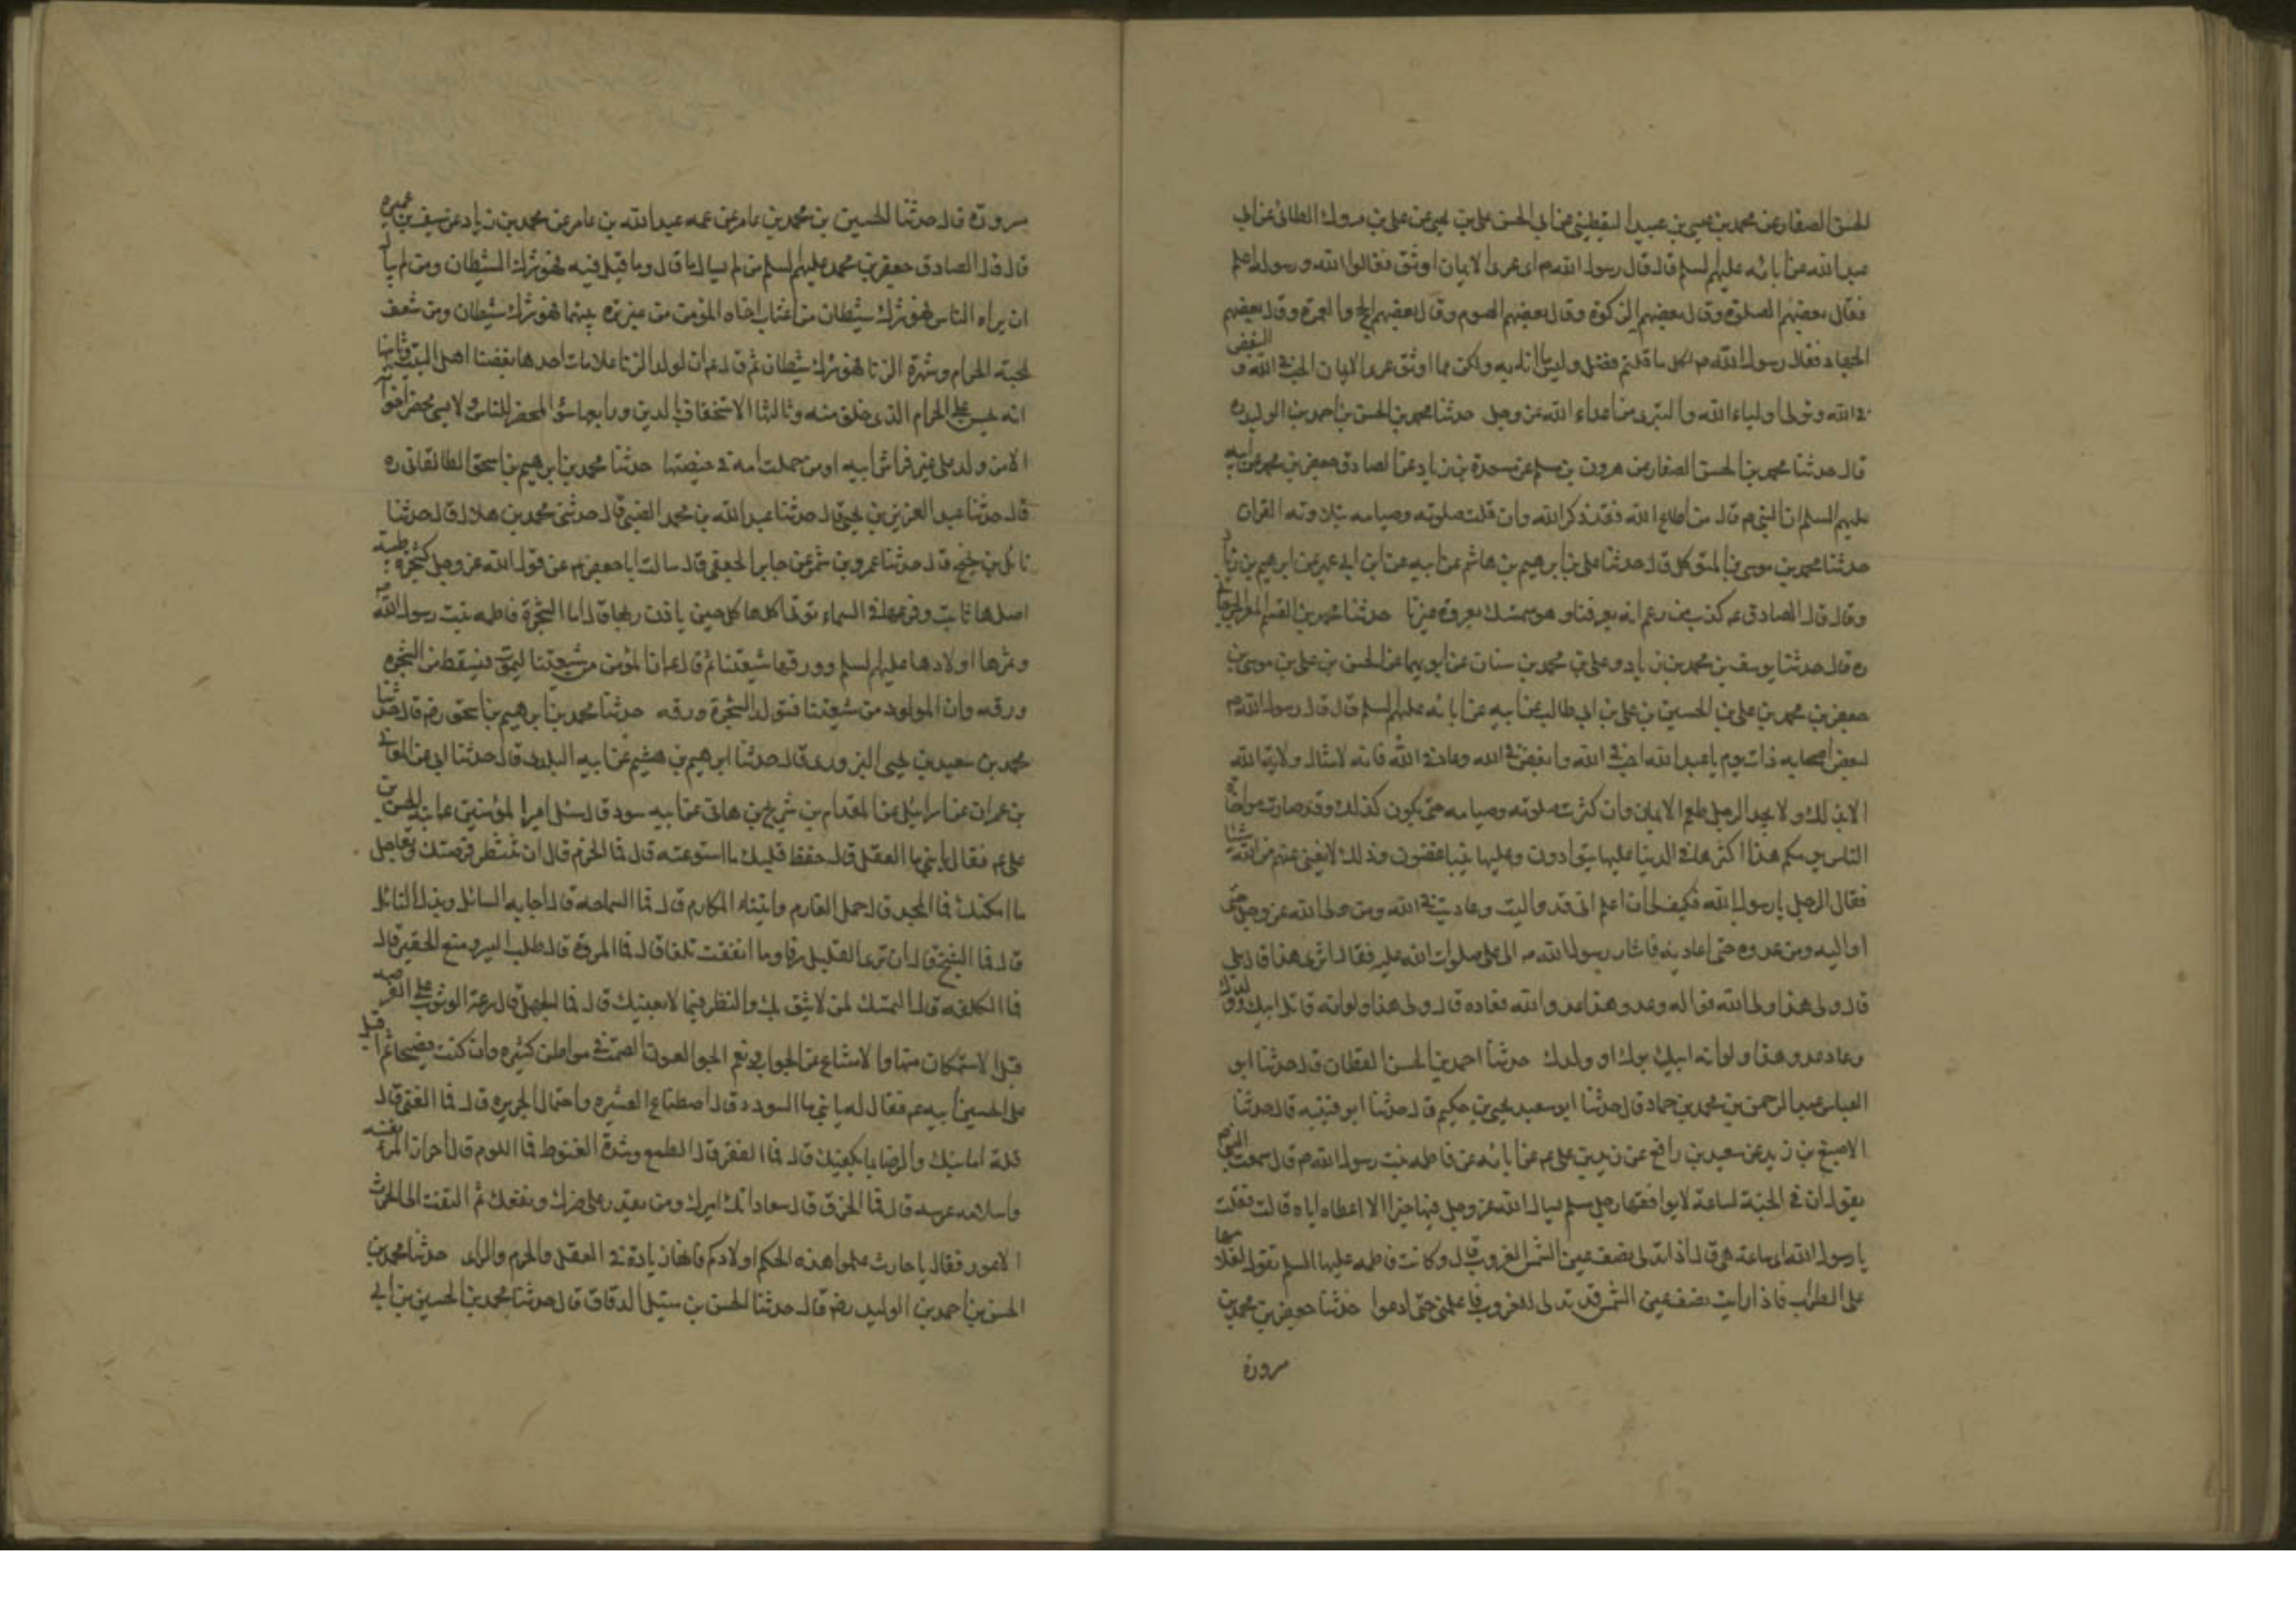 الحسن الصفار عن محمد بن عيسى بن عبيد اليقطيني عن ابي الحسن علي بن يحيى عن علي بن مروك الطائي عن ابي
عبد الله عن ابائه عليهم السلم قال قال رسول الله ص اي عرى الايمان اوثق فقالوا الله ورسوله اعلم
فقال بعضهم الصلوة وقال بعضهم الزكوة وقال بعضهم الصوم وقال بعضهم الحج والعمرة وقال بعضهم
الجهاد فقال رسول الله ص لكل ما قلتم فضل وليس به ولكن اوثق عرى الايمان الحب في الله والبغض
في الله وتولى اولياء الله والتبري من اعداء الله عز وجل حدثنا محمد بن الحسن بن احمد بن الوليد ره
قال حدثنا محمد بن الحسن الصفار عن هرون بن مسلم عن مسعدة بن زياد عن الصادق جعفر بن محمد عن ابيه
عليهم السلم ان النبي ص قال من اطاع الله فقد ذكر الله وان قلت صلوته وصيامه وتلاوته القران
حدثنا محمد بن موسى بن المتوكل قال حدثنا علي بن ابرهيم بن هاشم عن ابيه عن ابن ابي عمير عن ابرهيم بن زياد
وقال قال الصادق ع كذب من زعم انه يعرفنا وهو مستمسك بعروة غيرنا حدثنا محمد بن القسم المفسر الجرجاني
ره قال حدثنا يوسف بن محمد بن زياد وعلي بن محمد بن سنان عن ابويهما عن الحسن بن علي بن موسى بن
جعفر بن محمد بن علي بن الحسين بن علي بن ابي طالب عن ابيه عن ابائه عليهم السلم قال قال رسول الله ص
لبعض اصحابه ذات يوم يا عبد الله احب في الله وابغض في الله وعاد في الله فانه لا تنال ولاية الله
الا بذلك ولا يجد الرجل طعم الايمان وان كثرت صلوته وصيامه حتى يكون كذلك وقد صارت مواخاة
الناس يومكم هذا اكثرها في الدنيا عليها يتوادون وعليها يتباغضون وذلك لا يغني عنهم من الله شيئا
فقال الرجل يا رسول الله فكيف لي ان اعلم اني قد واليت وعاديت في الله ومن ولي الله عز وجل حتى
اواليه ومن عدوه حتى اعاديه فاشار رسول الله ص الى علي صلوات الله عليه فقال اترى هذا قال بلى
قال ولي هذا ولي الله فواله وعدو هذا عدو الله فعاده قال وال ولي هذا ولو انه قاتل ابيك وولدك
وعاد عدو هذا ولو انه ابوك او ولدك حدثنا احمد بن الحسن القطان قال حدثنا ابو
العباس عبد الرحمن بن محمد بن حماد قال حدثنا ابو سعيد يحيى بن حكيم قال حدثنا ابو قتيبه قال حدثنا
الاصبغ بن زيد عن سعيد بن رافع عن زيد بن علي ع عن ابائه عن فاطمه بنت رسول الله ص قال سمعت النبي ص
يقول ان في الجمعة لساعة لا يوافقها رجل مسلم يسال الله عز وجل فيها خيرا الا اعطاه اياه قالت فقلت
يا رسول الله اي ساعة هي قال اذا تدلى نصف عين الشمس للغروب قال وكانت فاطمه عليها السلم تقول لغلامها
على الظراب فاذا رايت نصف عين الشمس قد تدلى للغروب فاعلمني حتى ادعوا حدثنا جعفر بن محمد بن
مسرورة
مسرورة قال حدثنا الحسين بن محمد بن عامر عن عمه عبد الله بن عامر عن محمد بن زياد عن سيف بن عميره
قال قال الصادق جعفر بن محمد عليهم السلم من لم يبال ما قال وما قيل فيه فهو شرك الشيطان ومن لم يبال
ان يراه الناس فهو شرك شيطان من اغتاب اخاه المؤمن من غير تره بينهما فهو شرك شيطان ومن شعف
لمحبة الحرام وشهوة الزنا فهو شرك شيطان ثم قال ع ان لولد الزنا علامات احدها بغضنا اهل البيت وثانيها
انه يحن الى الحرام الذي خلق منه وثالثها الاستخفاف بالدين ورابعها سوء المحضر للناس ولا يسيء محضر اخوانه
الا من ولد على غير فراش ابيه او من حملت امه في حيضتها حدثنا محمد بن ابرهيم بن اسحق الطالقاني ره
قال حدثنا عبد العزيز بن يحيى قال حدثنا عبد الله بن محمد الضبي قال حدثني محمد بن هلال قال حدثنا
نائل بن نجيح قال حدثنا عمرو بن شمر عن جابر الجعفي قال سالت ابا جعفر ع عن قول الله عز وجل كشجرة طيبة
اصلها ثابت وفرعها في السماء تؤتي اكلها كل حين باذن ربها قال اما الشجرة فاطمه بنت رسول الله ص
وثمرها اولادها عليهم السلم وورقها شيعتنا ثم قال ع ان المؤمن من شيعتنا ليموت فيسقط من الشجرة
ورقه وان المولود من شيعتنا فتولد الشجرة ورقه حدثنا محمد بن ابرهيم بن اسحق رض قال حدثنا
محمد بن سعيد بن يحيى البزوري قال حدثنا ابرهيم بن هشيم عن ابيه البلدي قال حدثنا ابي عن المعافى
بن عمران عن اسرائيل عن المقدام بن شريح بن هاني عن ابيه قال سئل امير المؤمنين ع ابنه الحسن بن
علي ع فقال يا بني ما العقل قال حفظ قلبك ما استودعته قال فما الحزم قال ان تنتظر فرصتك وتعاجل
ما امكنك قال فما المجد قال حمل المغارم وابتناء المكارم قال فما السماحه قال اجابه السائل وبذل النائل
قال فما الشح قال ان ترى القليل سرفا وما انفقت تلفا قال فما المروة قال طلب اليسير ومنع الحقير قال
فما الكلفه قال التمسك لمن لا يثق بك والنظر فيما لا يعنيك قال فما الجهل قال سرعة الوثوب على الفرصه
قبل الاستمكان منها والامتناع عن الجواب ونعم العون الصمت في مواطن كثيره وان كنت فصيحا ثم اقبل
على الحسين ابنه ع فقال له يا بني ما السودد قال اصطناع العشيره واحتمال الجريره قال فما الغنى قال
قلة امانيك والرضا بما يكفيك قال فما الفقر قال الطمع وشدة القنوط فما اللوم قال احراز المرء نفسه
واسلامه عرسه قال فما الخرق قال معاداتك اميرك ومن يقدر على ضرك ونفعك ثم التفت الى الحارث
الاعور فقال يا حارث علموا هذه الحكم اولادكم فانها زيادة في العقل والحزم والراي حدثنا محمد بن
الحسن بن احمد بن الوليد رض قال حدثنا الحسن بن متيل الدقاق قال حدثنا محمد بن الحسين بن ابي